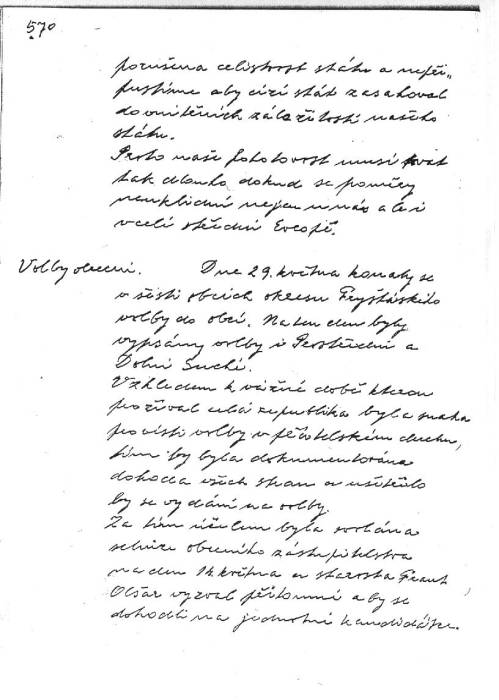 570
porušena celistvost státu a nepři„
pustíme aby cizí stát zasahoval
do vnitřních záležitostí našeho
státu.
Proto naše pohotovost musí trvat
tak dlouho dokud se poměry
neuklidní nejen u nás ale i
v celé střední Evropě.
Volby obecní. Dne 29. května konaly se
v šesti obcích okresu Fryštátského
volby do obcí. Na ten den byly
vypsány volby i Prostřední a
Dolní Suché.
Vzhledem k vážné době kterou
prožívala celá republika byla snaha
provésti volby v přátelském duchu,
čím by byla dokumentována
dohoda všech stran a ušetřilo
by se vydání na volby.
Za tím účelem byla svolána
schůze obecního zastupitelstva
na den května a starosta Frant
Olšar vyzval přítomné aby se
dohodli na jednotné kandidátce.